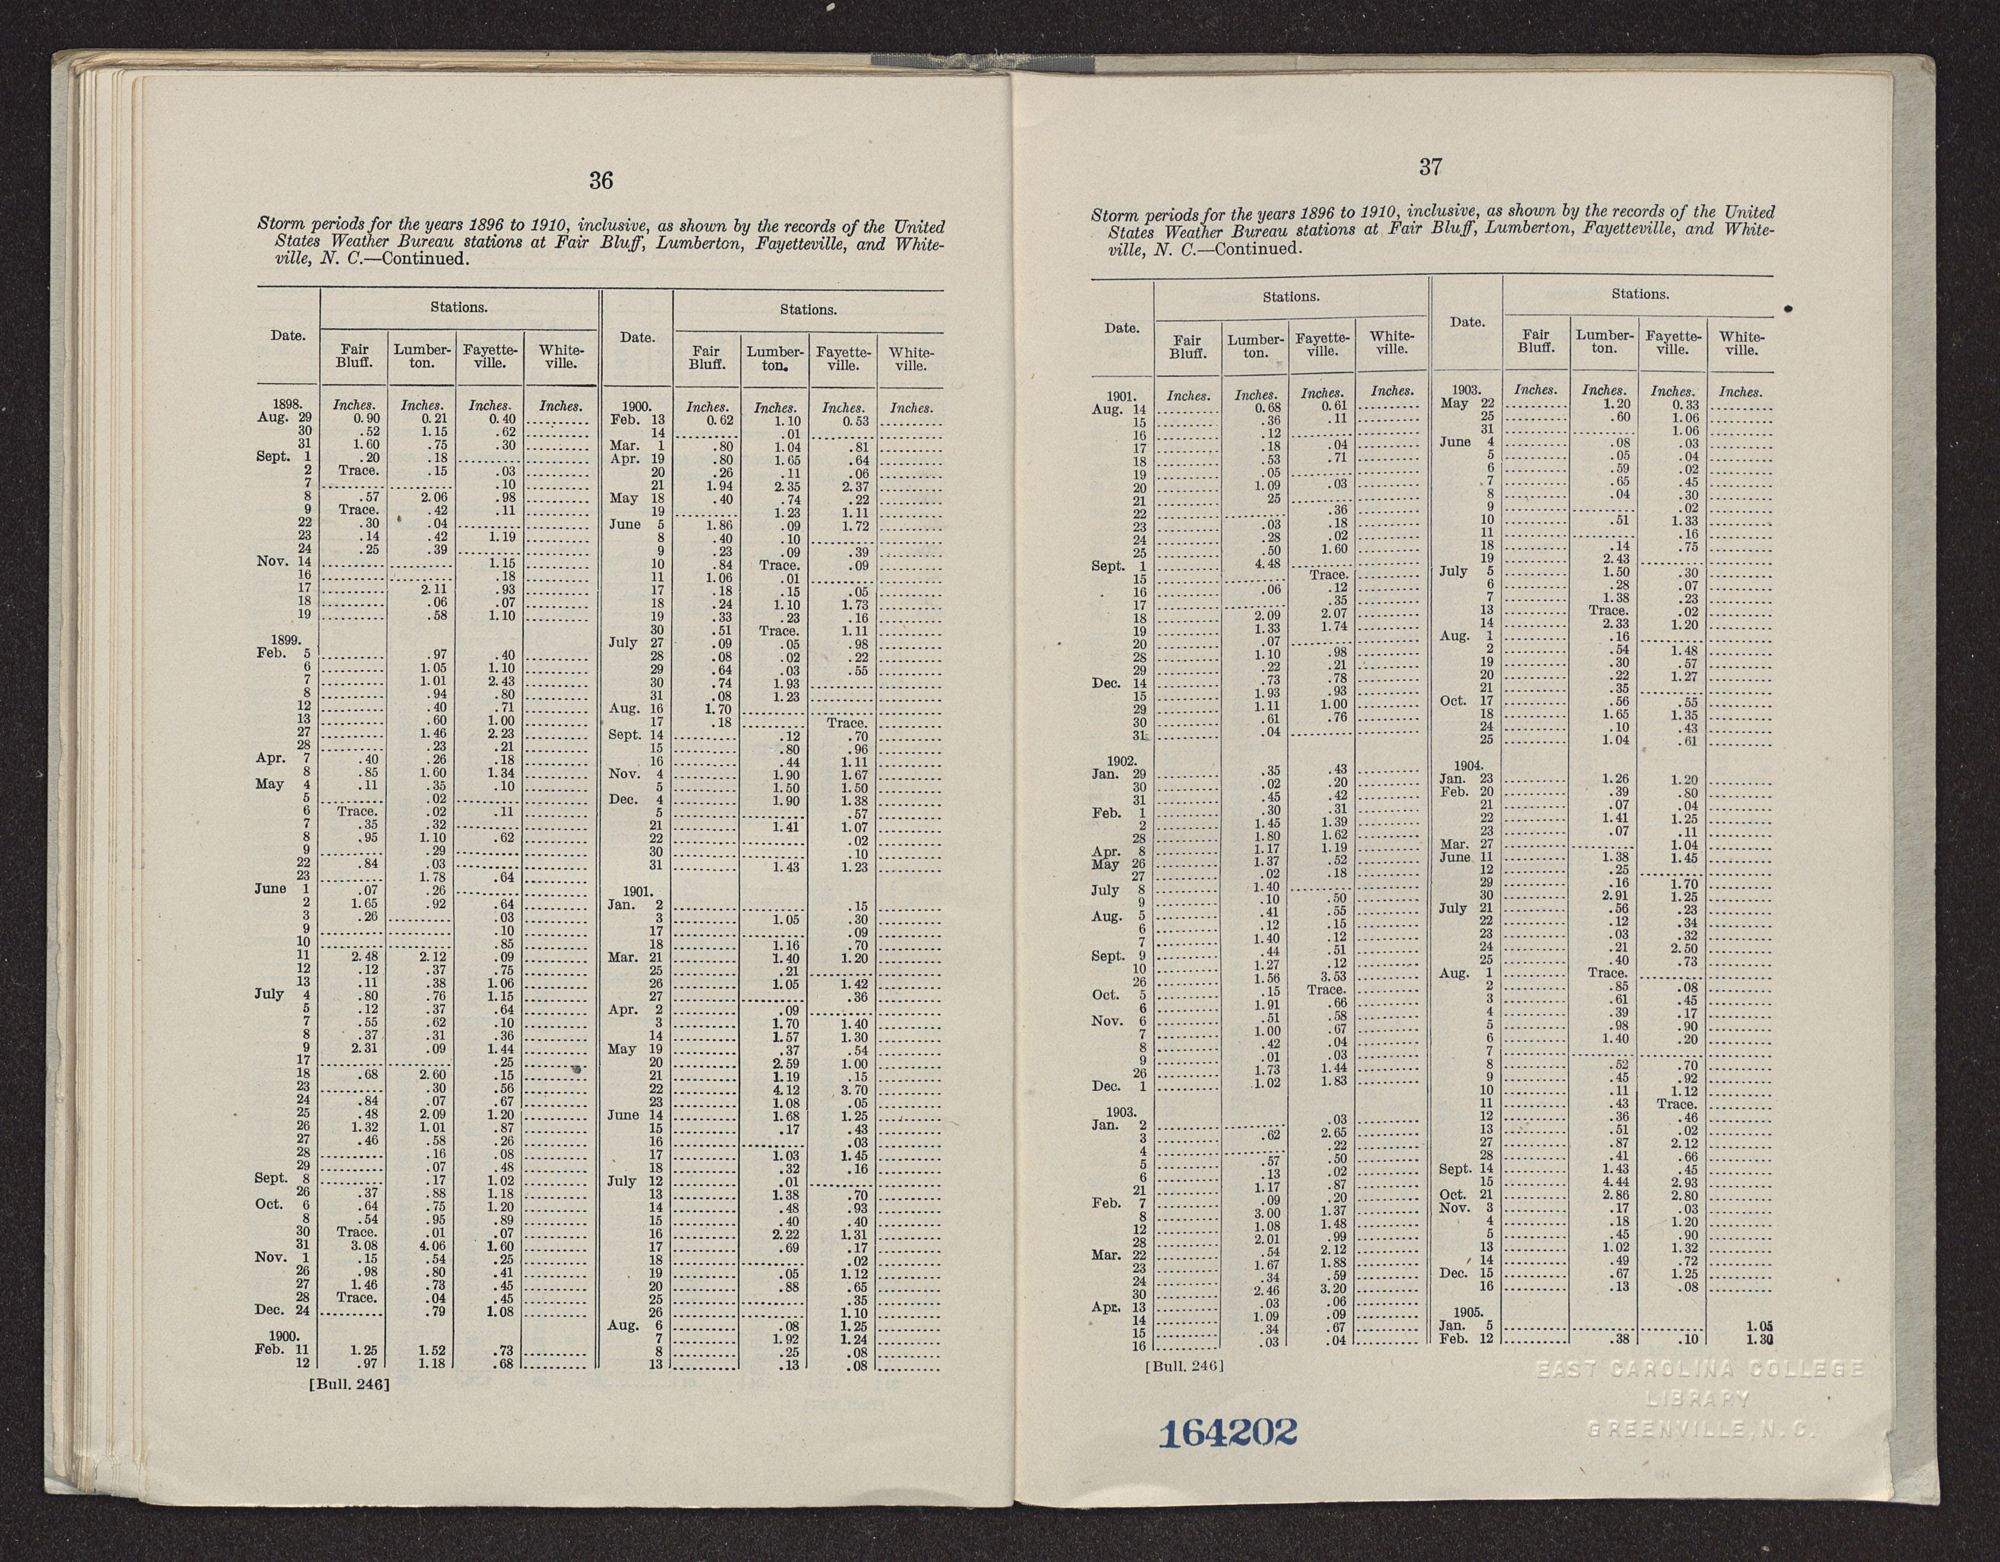 36
Storm periods for the years 1896 to 1910, inclusive, as shown by the records of the United
States Weather Bureau stations at Fair Bluff, Lumberton, Fayetteville, and White-
ville, N. C.—Continued.
Date. Stations.
Fair Bluff. Lumber-ton. Fayette-ville. White-ville.
1898. Inches. Inches. Inches. Inches.
Aug. 29 0.90 0.21 0.40
30 .52 1.15 .62
31 1.60 .75 .30
Sept. 1 .20 .18
2 Trace. .15 .03
7 .10
8 .57 2.06 .98
9 Trace. .42 .11
22 .30 .04
23 .14 .42 1.19
24 .25 .39
Nov. 14 1.15
16 .18
17 2.11 .93
18 .06 .07
19 .58 1.10
1899.
Feb. 5 .97 .40
6 1.05 1.10
7 1.01 2.43
8 .94 .80
12 .40 .71
13 .60 1.00
27 1.46 2.23
28 .23 .21
Apr. 7 .40 .26 .18
8 .85 1.60 1.34
May 4 .11 .35 .10
5 .02
6 Trace. .02 .11
7 .35 .32
8 .95 1.10 .62
9 .29
22 .84 .03
23 1.78 .64
June 1 .07 .26
2 1.65 .92 .64
3 .26 .03
9 .10
10 .85
11 2.48 2.12 .09
12 .12 .37 .75
13 .11 .38 1.06
July 4 .80 .76 1.15
5 .12 .37 .64
7 .55 .62 .10
8 .37 .31 .36
9 2.31 .09 1.44
17 .25
18 .68 2.60 .15
23 .30 .56
24 .84 .07 .67
25 .48 2.09 1.20
26 1.32 1.01 .87
27 .46 .58 .26
28 .16 .08
29 .07 .48
Sept. 8 .17 1.02
26 .37 .88 1.18
Oct. 6 .64 .75 1.20
8 .54 .95 .89
30 Trace. .01 .07
31 3.08 4.06 1.60
Nov. 1 .15 .54 .25
26 .98 .80 .41
27 1.46 .73 .45
28 Trace. .04 .45
Dec. 24 .79 1.08
1900.
Feb. 11 1.25 1.52 .73
12 .97 1.18 .68
Date. Stations.
Fair Bluff. Lumber-ton. Fayette-ville. White-ville.
1900. Inches. Inches. Inches. Inches.
Feb. 13 0.62 1.10 0.53
14 .01
Mar. 1 .80 1.04 .81
Apr. 19 .80 1.65 .64
20 .26 .11 .06
21 1.94 2.35 2.37
May 18 .40 .74 .22
19 1.23 1.11
June 5 1.86 .09 1.72
8 .40 .10
9 .23 .09 .39
10 .84 Trace. .09
11 1.06 .01
17 .18 .15 .05
18 .24 1.10 1.73
19 .33 .23 .16
30 .51 Trace. 1.11
July 27 .09 .05 .98
28 .08 .02 .22
29 .64 .03 .55
30 .74 1.93
31 .08 1.23
Aug. 16 1.70
17 .18 Trace.
Sept. 14 .12 .70
15 .80 .96
16 .44 1.11
Nov. 4 1.90 1.67
5 1.50 1.50
Dec. 4 1.90 1.38
5 .57
21 1.41 1.07
22 .02
30 .10
31 1.43 1.23
1901.
Jan. 2 .15
3 1.05 .30
17 .09
18 1.16 .70
Mar. 21 1.40 1.20
25 .21
26 1.05 1.42
27 .36
Apr. 2 .09
3 1.70 1.40
14 1.57 1.30
May 19 .37 .54
20 2.59 1.00
21 1.19 .15
22 4.12 3.70
23 1.08 .05
June 14 1.68 1.25
15 .17 .43
16 .03
17 1.03 1.45
18 .32 .16
July 12 .01
13 1.38 .70
14 .48 .93
15 .40 .40
16 2.22 1.31
17 .69 .17
18 .02
19 .05 1.12
20 .88 .65
25 .35
26 1.10
Aug. 6 .08 1.25
7 1.92 1.24
8 .25 .08
13 .13 .08
[Bull. 246]
37
Storm periods for the years 1896 to 1910, inclusive, as shown by the records of the United
States Weather Bureau stations at Fair Bluff, Lumberton, Fayetteville, and White-
ville, N. C.—Continued.
Date. Stations.
Fair Bluff. Lumber-ton. Fayette-ville. White-ville.
1901. Inches. Inches. Inches. Inches.
Aug. 14 0.68 0.61
15 .36 .11
16 .12
17 .18 .04
18 .53 .71
19 .05
20 1.09 .03
21 25
22 .36
23 .03 .18
24 .28 .02
25 .50 1.60
Sept. 1 4.48
15 Trace.
16 .06 .12
17 .35
18 2.09 2.07
19 1.33 1.74
20 .07
28 1.10 .98
29 .22 .21
Dec. 14 .73 .78
15 1.93 .93
29 1.11 1.00
30 .61 .76
31 .04
1902.
Jan. 29 .35 .43
30 .02 .20
31 .45 .42
Feb. 1 .30 .31
2 1.45 1.39
28 1.80 1.62
Apr. 8 1.17 1.19
May 26 1.37 .52
27 .02 .18
July 8 1.40
9 .10 .50
Aug. 5 .41 .55
6 .12 .15
7 1.40 .12
Sept. 9 .44 .51
10 1.27 .12
26 1.56 3.53
Oct. 5 .15 Trace.
6 1.91 .66
Nov. 6 .51 .58
7 1.00 .67
8 .42 .04
9 .01 .03
26 1.73 1.44
Dec. 1 1.02 1.83
1903.
Jan. 2 .03
3 .62 2.65
4 .22
5 .57 .50
6 .13 .02
21 1.17 .87
Feb. 7 .09 .20
8 3.00 1.37
12 1.08 1.48
28 2.01 .99
Mar. 22 .54 2.12
23 1.67 1.88
24 .34 .59
30 2.46 3.20
Apr. 13 .03 .06
14 1.09 .09
15 .34 .67
16 .03 .04
Date. Stations.
Fair Bluff. Lumber-ton. Fayette-ville. White-ville.
1903. Inches. Inches. Inches. Inches.
May 22 1.20 0.33
25 .60 1.06
31 1.06
June 4 .08 .03
5 .05 .04
6 .59 .02
7 .65 .45
8 .04 .30
9 .02
10 .51 1.33
11 .16
18 .14 .75
19 2.43
July 5 1.50 .30
6 .28 .07
7 1.38 .23
13 Trace. .02
14 2.33 1.20
Aug. 1 .16
2 .54 1.48
19 .30 .57
20 .22 1.27
21 .35
Oct. 17 .56 .55
18 1.65 1.35
24 .10 .43
25 1.04 .61
1904.
Jan. 23 1.26 1.20
Feb. 20 .39 .80
21 .07 .04
22 1.41 1.25
23 .07 .11
Mar. 27 1.04
June 11 1.38 1.45
12 .25
29 .16 1.70
30 2.91 1.25
July 21 .56 .23
22 .12 .34
23 .03 .32
24 .21 2.50
25 .40 .73
Aug. 1 Trace.
2 .85 .08
3 .61 .45
4 .39 .17
5 .98 .90
6 1.40 .20
7
8 .52 .70
9 .45 .92
10 .11 1.12
11 .43 Trace.
12 .36 .46
13 .51 .02
27 .87 2.12
28 .41 .66
Sept. 14 1.43 .45
15 4.44 2.93
Oct. 21 2.86 2.80
Nov. 3 .17 .03
4 .18 1.20
5 .45 .90
13 1.02 1.32
14 .49 .72
Dec. 15 .67 1.25
16 .13 .08
1905.
Jan. 5 1.05
Feb. 12 .38 .10 1.30
[Bull. 246]
EAST CAROLINA COLLEGE
LIBRARY
GREENVILLE, N. C.
164202